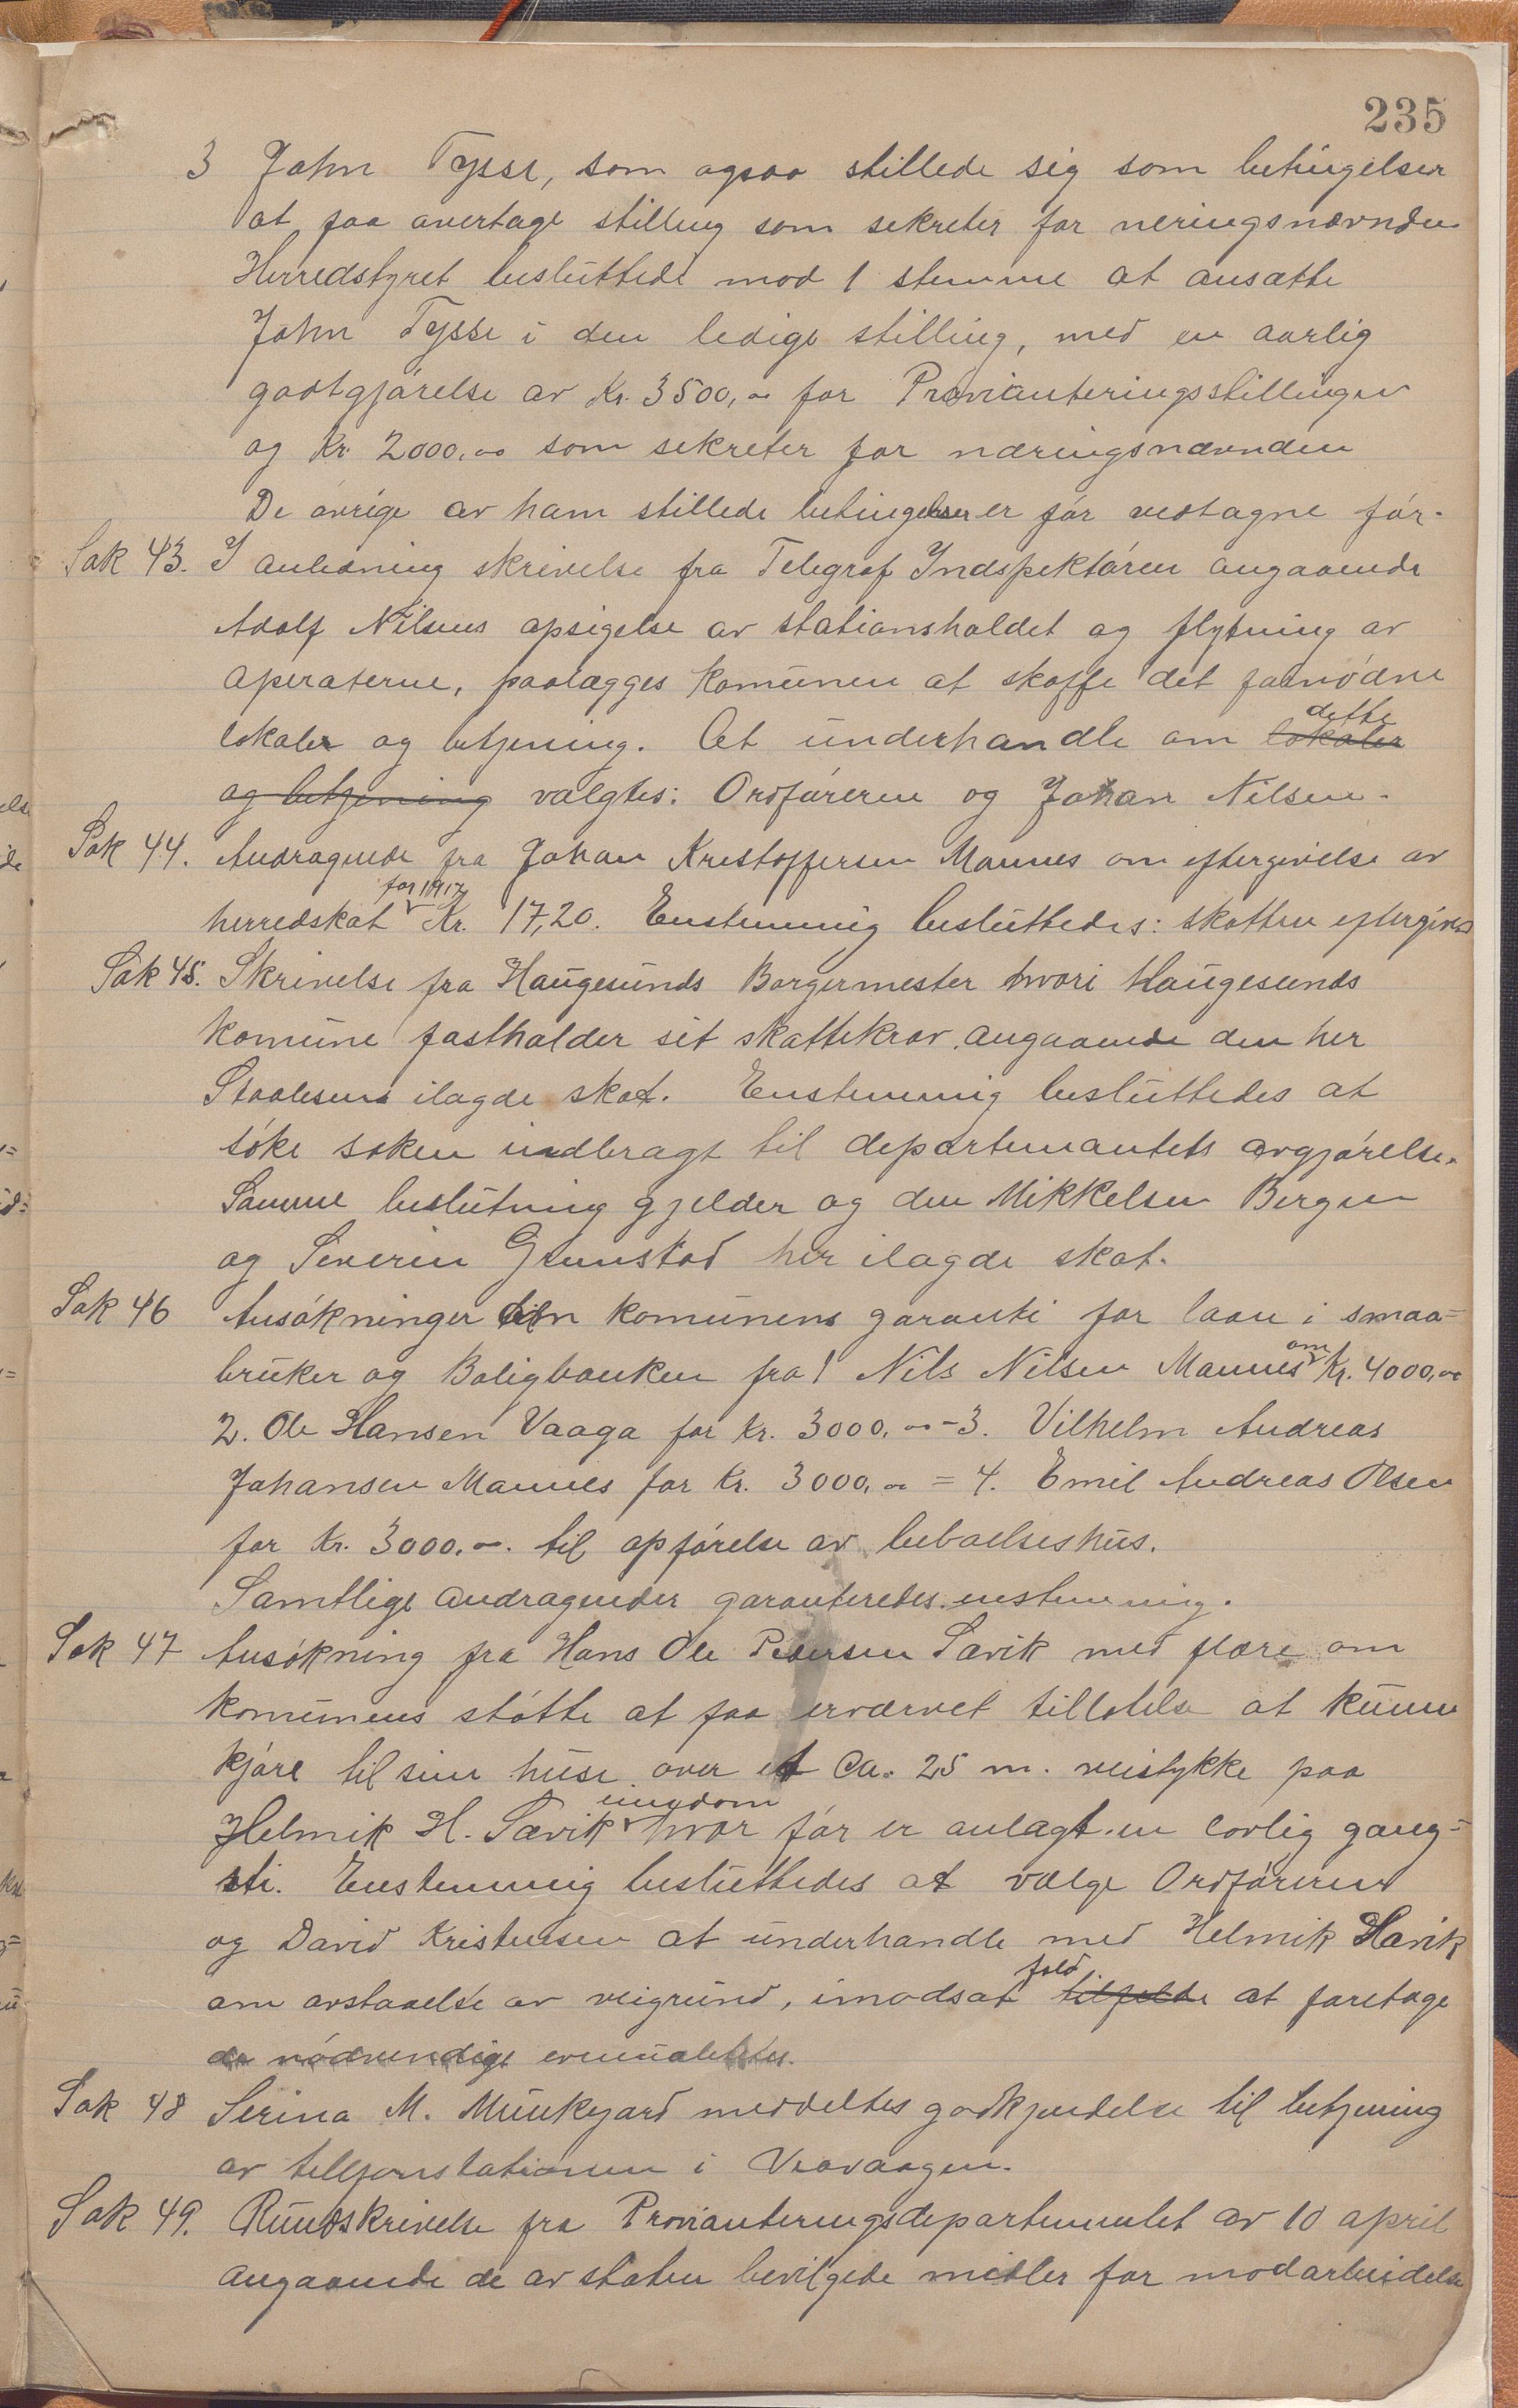 235
3 John Tysse, som ogsaa stillede sig som betingelser
at faa overtage stilling som sekretær for neringsnævnden
Herredstyret besluttede mod 1 stemme at ansætte
John Tysse i den ledige stilling, med en aarlig
godtgjørelse av Kr. 3500,00 for Provianteringsstillingen
og Kr. 2000,00 som sekretær for næringsnævnden
De øvrige av ham stillede betingelser er før vedtagne før.
Sak 43. I anledning skrivelse fra Telegraf Indspektøren angaaende
Adolf Nilsens opsigelse av stationsholdet og flytning av
aperaterne, paalægges komunen at skaffe det fornødne
lokaler og betjening. At underhandle om lokaler dette
og betjening valgtes: Ordføreren og Johan Nilsen.
Sak 44. Andragende fra Johan Kristoffersen Mannes om eftergivelse av
herredskat for 1917 Kr. 17,20. Enstemmig besluttedes: skatten eftergives
Sak 45. Skrivelse fra Haugesunds Borgermester hvori Haugesunds
komune fastholder sit skattekrav angaaende den her
Staalesens ilagde skat. Enstemmig besluttedes at
søke saken indbragt til departemantets avgjørelse.
Samme beslutning gjelder og den Mikkelsen Bergen
og Severin Grunstad her ilagde skat.
Sak 46 Ansøkninger om komunens garanti for laan i smaa=
bruker og Boligbanken fra 1 Nils Nilsen Mannes om Kr. 4000,00
2. Ole Hansen Vaaga for Kr. 3000,00 - 3. Vilhelm Andreas
Johansen Mannes for Kr. 3000,00 = 4. Emil Andreas Olsen
for Kr. 3000,00. til opførelse av beboelseshus.
Samtlige andragender garanteredes enstemmig.
Sak 47 Ansøkning fra Hans Ole Pedersen Sævik med flere om
komunens støtte at faa erværvet tillatelse at kunne
kjøre til sine huse over et ca. 25 m. veistykke paa
Helmik H. Sævik eiendom hvor før er anlagt en lovlig gang=
sti. Enstemmig besluttedes at vælge Ordføreren
og David Kristensen at underhandle med Helmik Hævik
om avstaaelse av veigrund, imodsat fald tilfelde at foretage
de nødvendige
Sak 48 Serina M. Munkejord meddeltes godkjendelse til betjening
av tellefonstationen i Veavaagen.
Sak 49. Rundskrivelse fra Provianteringsdepartementet av 10 april
angaaende de av staten bevilgede midler for modarbeidelse